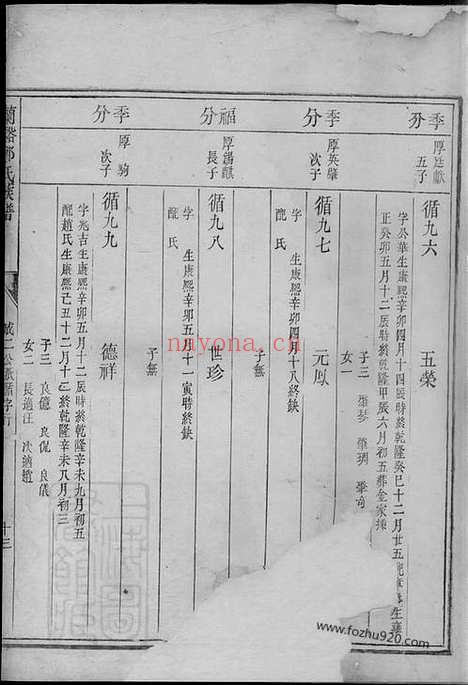 季分
厚廷獻
五子
循九六 五榮
字公華生康熙辛卯四月十四辰時終乾隆癸巳十二月廿五
生康
正癸卯五月十二辰時終乾隆甲辰六月初五葬金家
子三 肇琴 肇琱 肇奇
女一
季分
厚英肇
次子
循九七 元鳳
字 生康熙辛卯四月十八終缺
配 氏
子無
福分
厚錫麒
長子
循九八 世珍
字 生康熙辛卯五月十一寅時終缺
配 氏
子無
季分
厚駒
次子
循九九 德祥
字兆吉生康熙辛卯五月十二辰時終乾隆辛未九月初五
配趙氏生康熙己丑十二月十三終乾隆辛未八月初三
子三 良德 良侃 良儀
女二 長適汪 次適趙
蘭谿鄭氏族譜
循字行
十三
nayona.cn
www.fozhu920.com